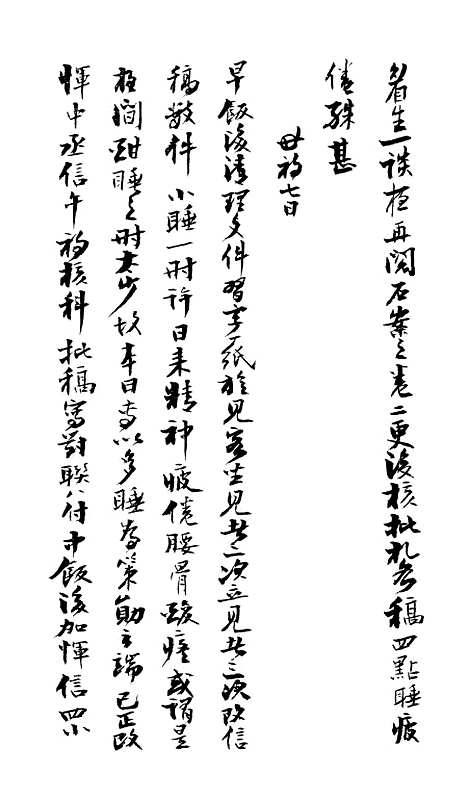 眉生一談夜再閱石案之卷二更後核批札各稿四點睡疲
倦殊甚
初七日
早飯後清理文件習字一紙旋見客坐見者二次立見者三次改信
稿數件小睡一時許日來精神疲倦腰骨酸疼或謂是
夜間酣睡之時太少故本日專以多睡為策勛之端巳正改
惲中丞信午初核科批稿寫對聯八付中飯後加惲信四小